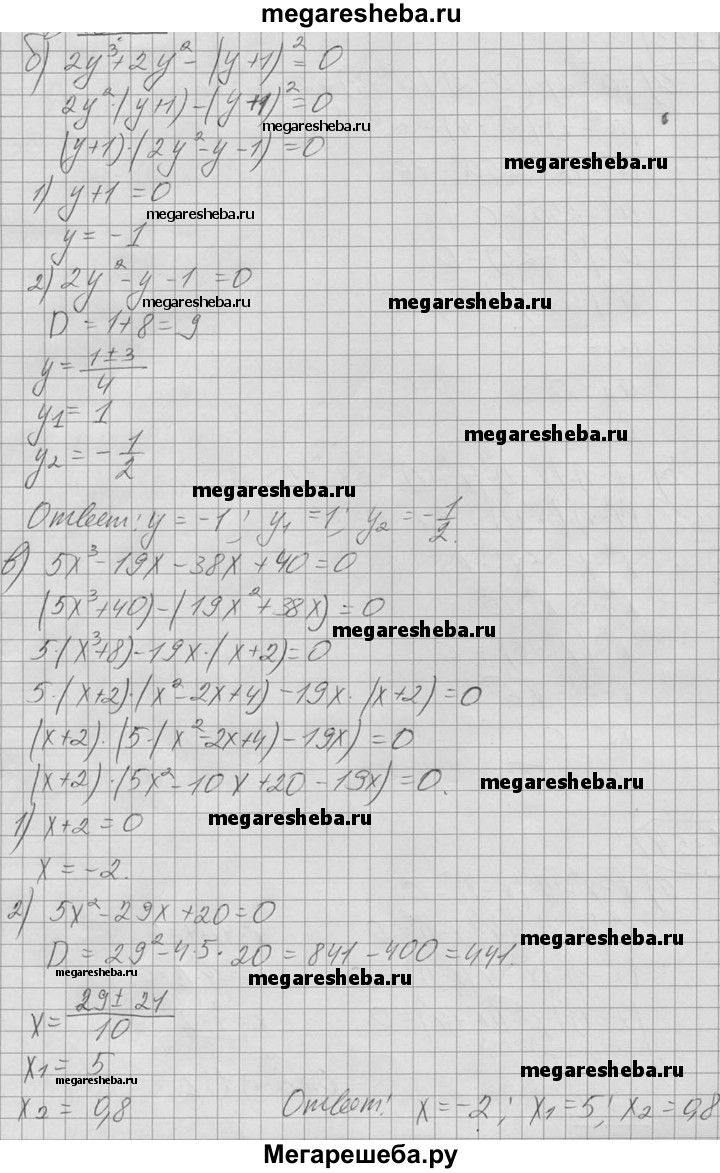 megaresheba.ru
б) 2y³+2y²-(y+1)²=0
2y²·(y+1)-(y+1)²=0
megaresheba.ru
(y+1)·(2y²-y-1)=0
megaresheba.ru
1) y+1=0
megaresheba.ru
y=-1
2) 2y²-y-1=0
megaresheba.ru
megaresheba.ru
D=1+8=9
y=(1±3)/4
y₁=1
megaresheba.ru
y₂=-1/2
megaresheba.ru
Ответ: y=-1; y₁=1; y₂=-1/2.
в) 5x³-19x-38x+40=0
(5x³+40)-(19x²+38x)=0
megaresheba.ru
5·(x³+8)-19x·(x+2)=0
5·(x+2)·(x²-2x+4)-19x·(x+2)=0
(x+2)·(5·(x²-2x+4)-19x)=0
(x+2)·(5x²-10x+20-19x)=0.
megaresheba.ru
1) x+2=0
megaresheba.ru
x=-2.
2) 5x²-29x+20=0
megaresheba.ru
D=29²-4·5·20=841-400=441.
megaresheba.ru
megaresheba.ru
x=(29±21)/10
x₁=5
megaresheba.ru
megaresheba.ru
x₂=0,8
Ответ: x=-2; x₁=5; x₂=0,8
Мегарешеба.ру